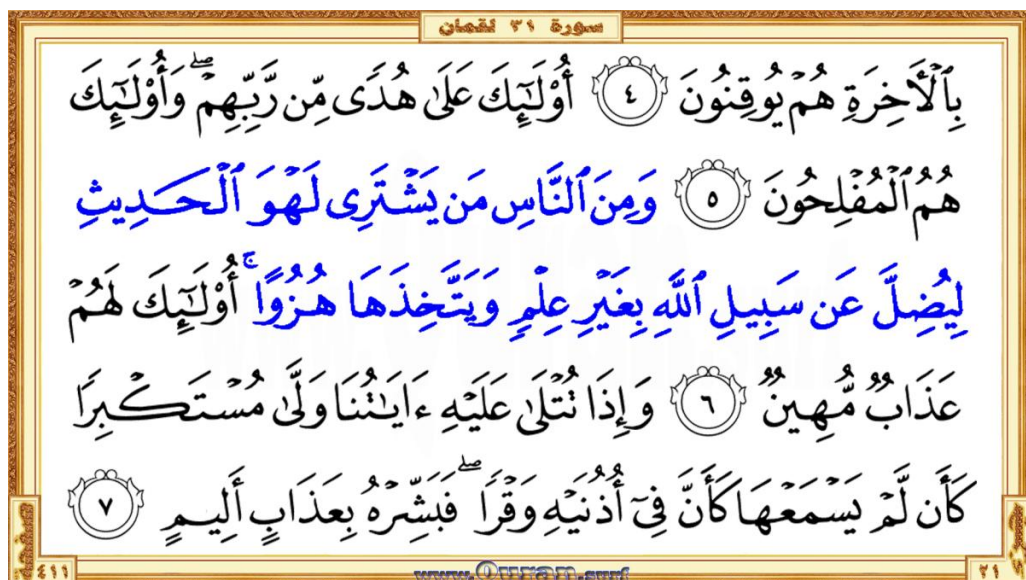 سورة ٣١ لقمان
بِٱلْأَخِرَةِ هُمْ يُوقِنُونَ ٤ أُوْلَٰٓئِكَ عَلَىٰ هُدًى مِّن رَّبِّهِمْ ۖ وَأُوْلَٰٓئِكَ
هُمُ ٱلْمُفْلِحُونَ ٥ وَمِنَ ٱلنَّاسِ مَن يَشْتَرِى لَهْوَ ٱلْحَدِيثِ
لِيُضِلَّ عَن سَبِيلِ ٱللَّهِ بِغَيْرِ عِلْمٍ وَيَتَّخِذَهَا هُزُوًا ۚ أُوْلَٰٓئِكَ لَهُمْ
عَذَابٌ مُّهِينٌ ٦ وَإِذَا تُتْلَىٰ عَلَيْهِ ءَايَٰتُنَا وَلَّىٰ مُسْتَكْبِرًا
كَأَن لَّمْ يَسْمَعْهَا كَأَنَّ فِىٓ أُذُنَيْهِ وَقْرًا ۖ فَبَشِّرْهُ بِعَذَابٍ أَلِيمٍ ٧
صفحة
٤١١
www.Quran.surf
٢١